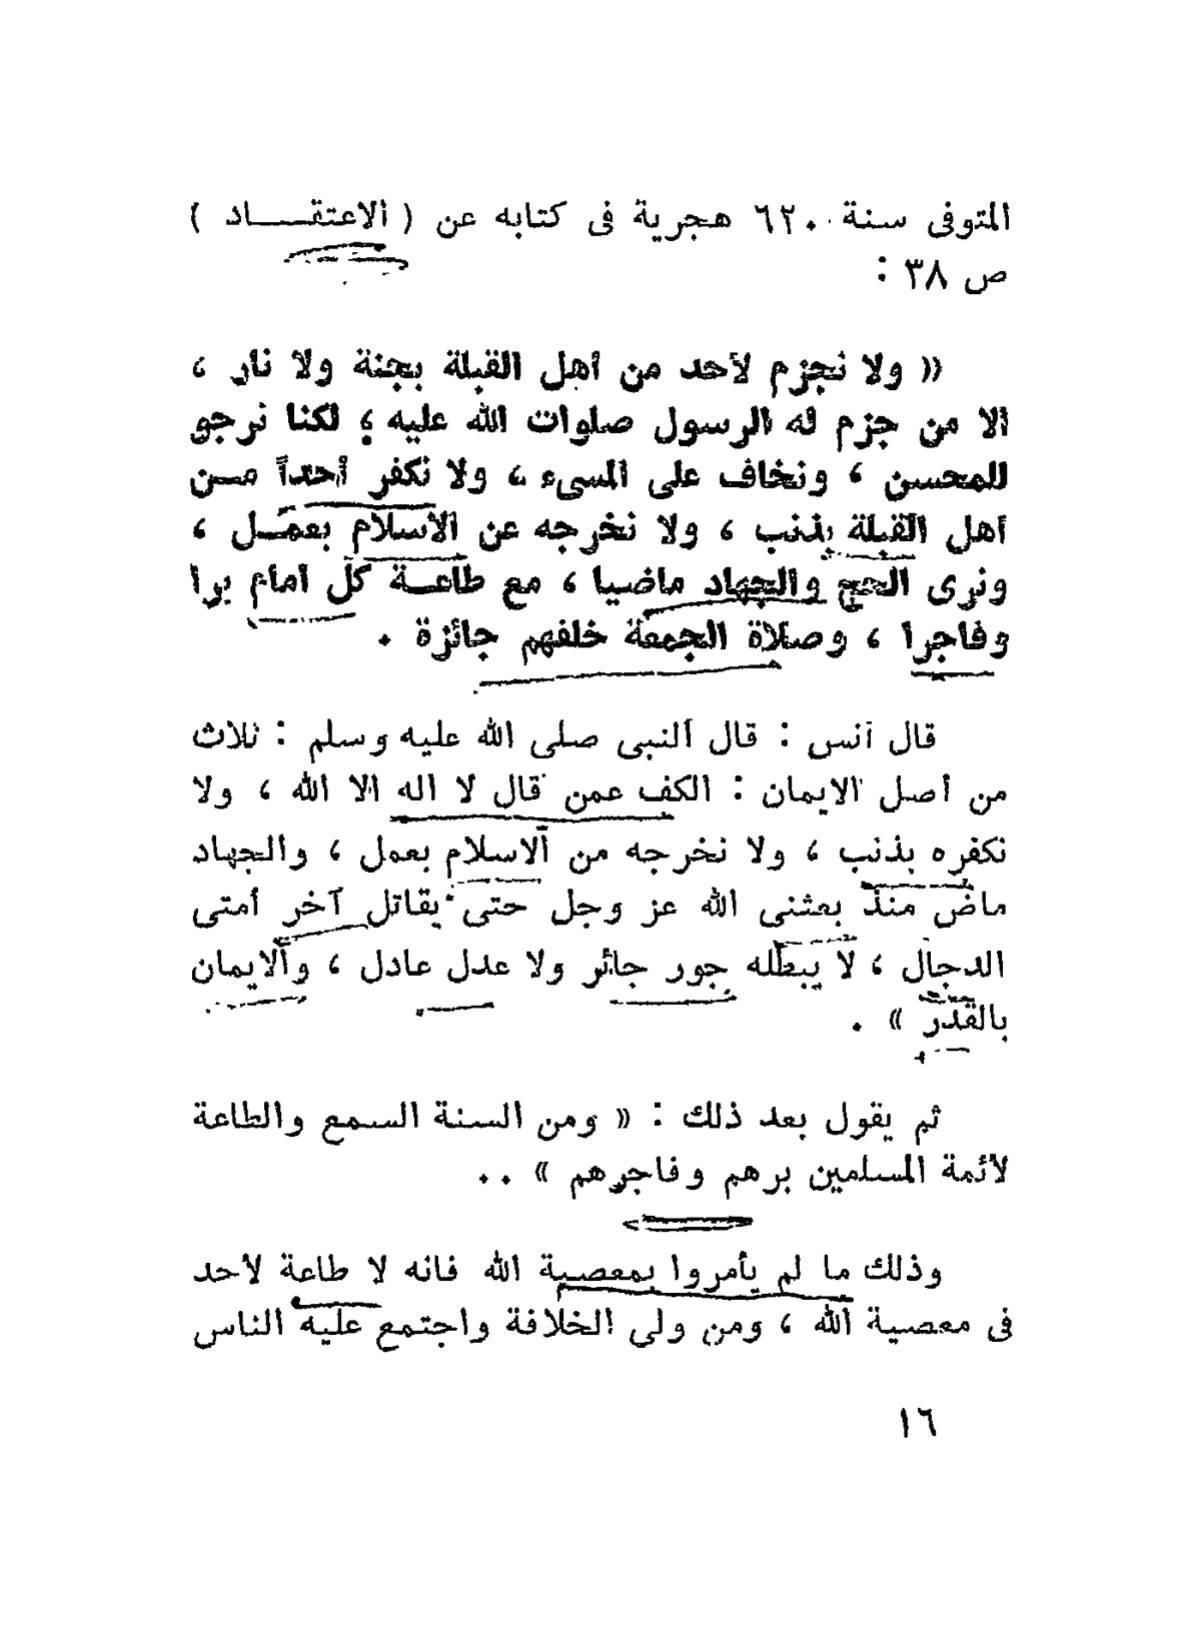 المتوفى سنة ٦٢٠ هجرية فى كتابه عن ( الاعتقـــاد )
ص ٣٨ :
« ولا نجزم لأحد من أهل القبلة بجنة ولا نار ،
الا من جزم له الرسول صلوات الله عليه ، لكنا نرجو
للمحسن ، ونخاف على المسىء ، ولا نكفر أحداً مـن
أهل القبلة بذنب ، ولا نخرجه عن الاسلام بعمـل ،
ونرى الحج والجهاد ماضيا ، مع طاعـة كل امام برا
وفاجرا ، وصلاة الجمعة خلفهم جائزة .
قال أنس : قال النبى صلى الله عليه وسلم : ثلاث
من أصل الايمان : الكف عمن قال لا اله الا الله ، ولا
نكفره بذنب ، ولا نخرجه من الاسلام بعمل ، والجهاد
ماض منذ بعثنى الله عز وجل حتى يقاتل آخر أمتى
الدجال ، لا يبطله جور جائر ولا عدل عادل ، والايمان
بالقدر » .
ثم يقول بعد ذلك : « ومن السنة السمع والطاعة
لأئمة المسلمين برهم وفاجرهم » . .
وذلك ما لم يأمروا بمعصية الله فانه لا طاعة لأحد
فى معصية الله ، ومن ولى الخلافة واجتمع عليه الناس
١٦